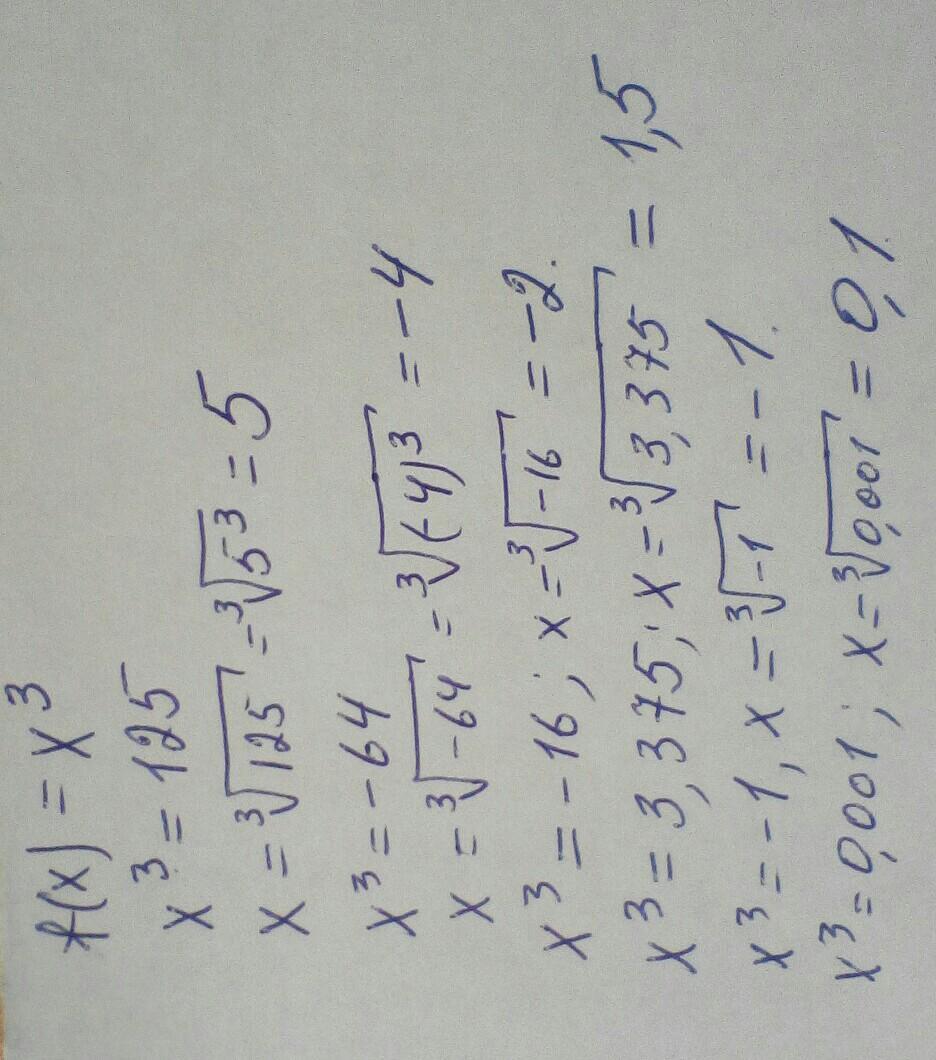 f(x) = x³
x³ = 125
x = ∛125 = ∛5³ = 5
x³ = -64
x = ∛-64 = ∛(-4)³ = -4
x³ = -16; x = ∛-16 = -2.
x³ = 3,375; x = ∛3,375 = 1,5
x³ = -1, x = ∛-1 = -1.
x³ = 0,001; x = ∛0,001 = 0,1.